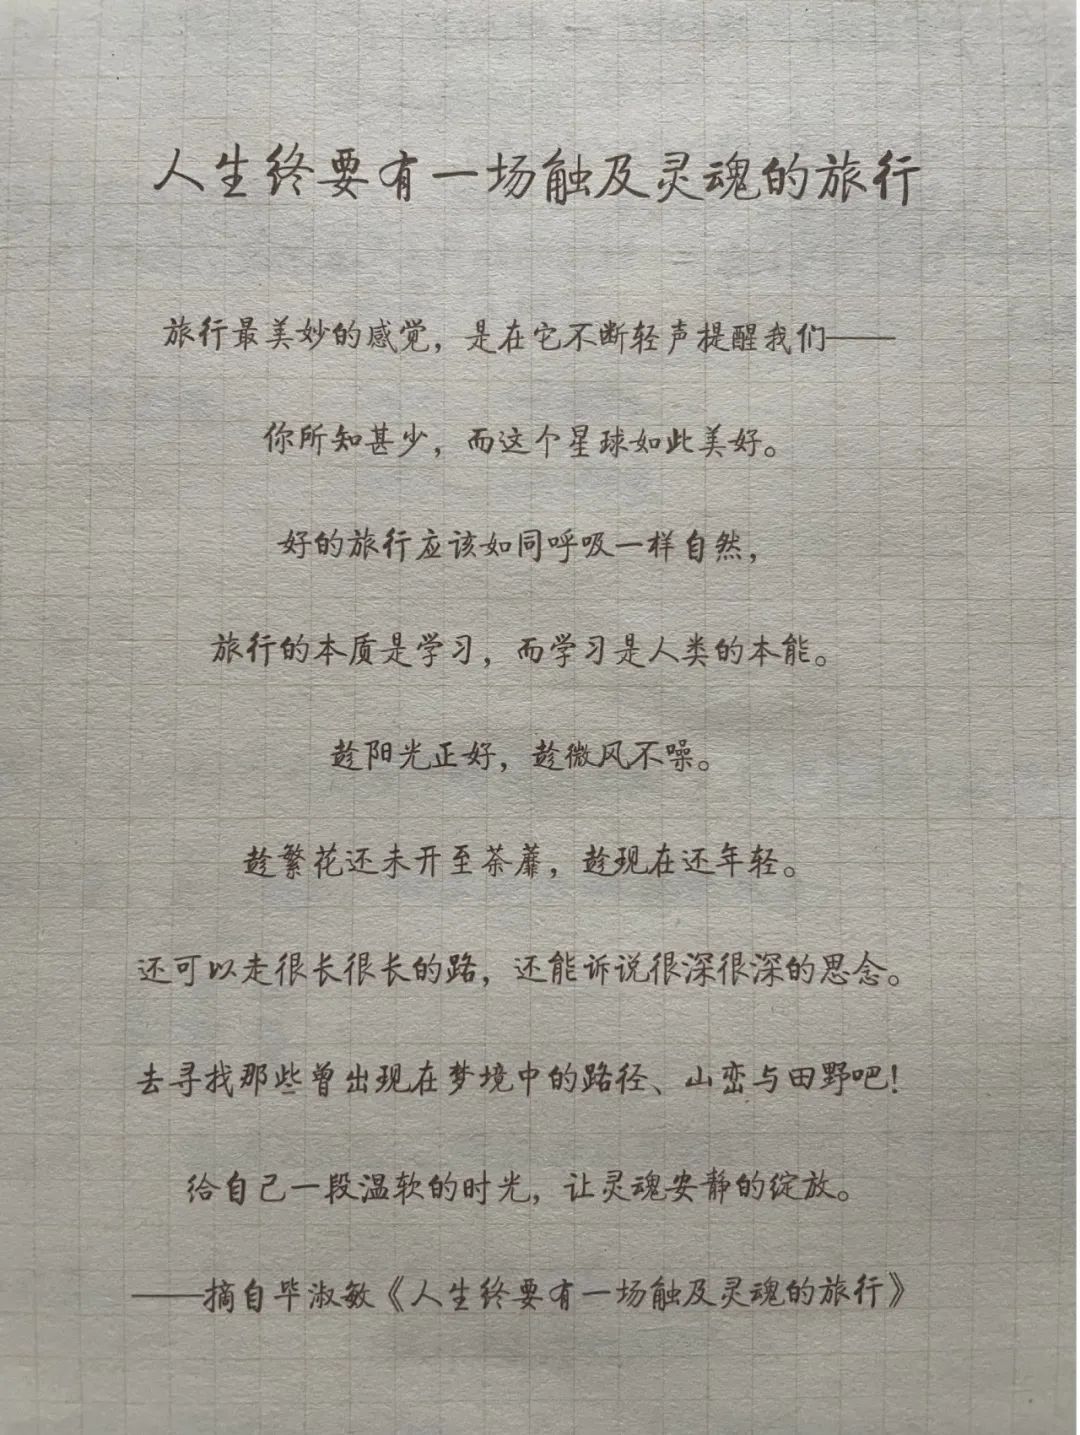 人生终要有一场触及灵魂的旅行
旅行最美妙的感觉，是在它不断轻声提醒我们——
你所知甚少，而这个星球如此美好。
好的旅行应该如同呼吸一样自然，
旅行的本质是学习，而学习是人类的本能。
趁阳光正好，趁微风不噪。
趁繁花还未开至荼蘼，趁现在还年轻。
还可以走很长很长的路，还能诉说很深很深的思念。
去寻找那些曾出现在梦境中的路径、山峦与田野吧！
给自己一段温软的时光，让灵魂安静的绽放。
——摘自毕淑敏《人生终要有一场触及灵魂的旅行》